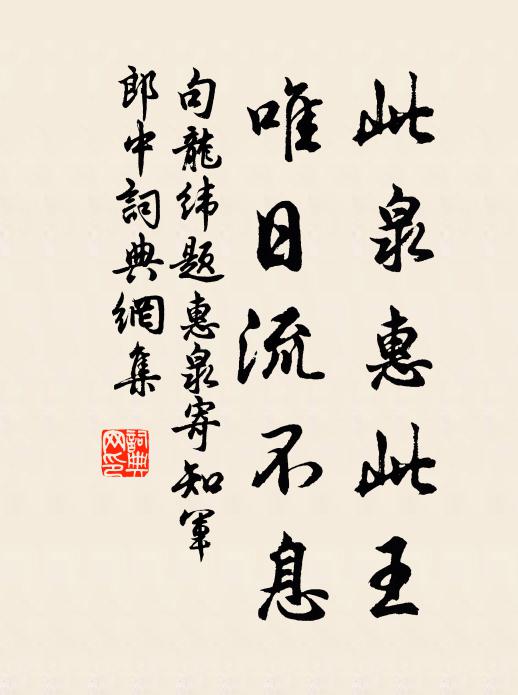 此泉惠此王
唯日流不息
句龍纬题惠泉寄知軍
郎中詞典網集
詞典网印